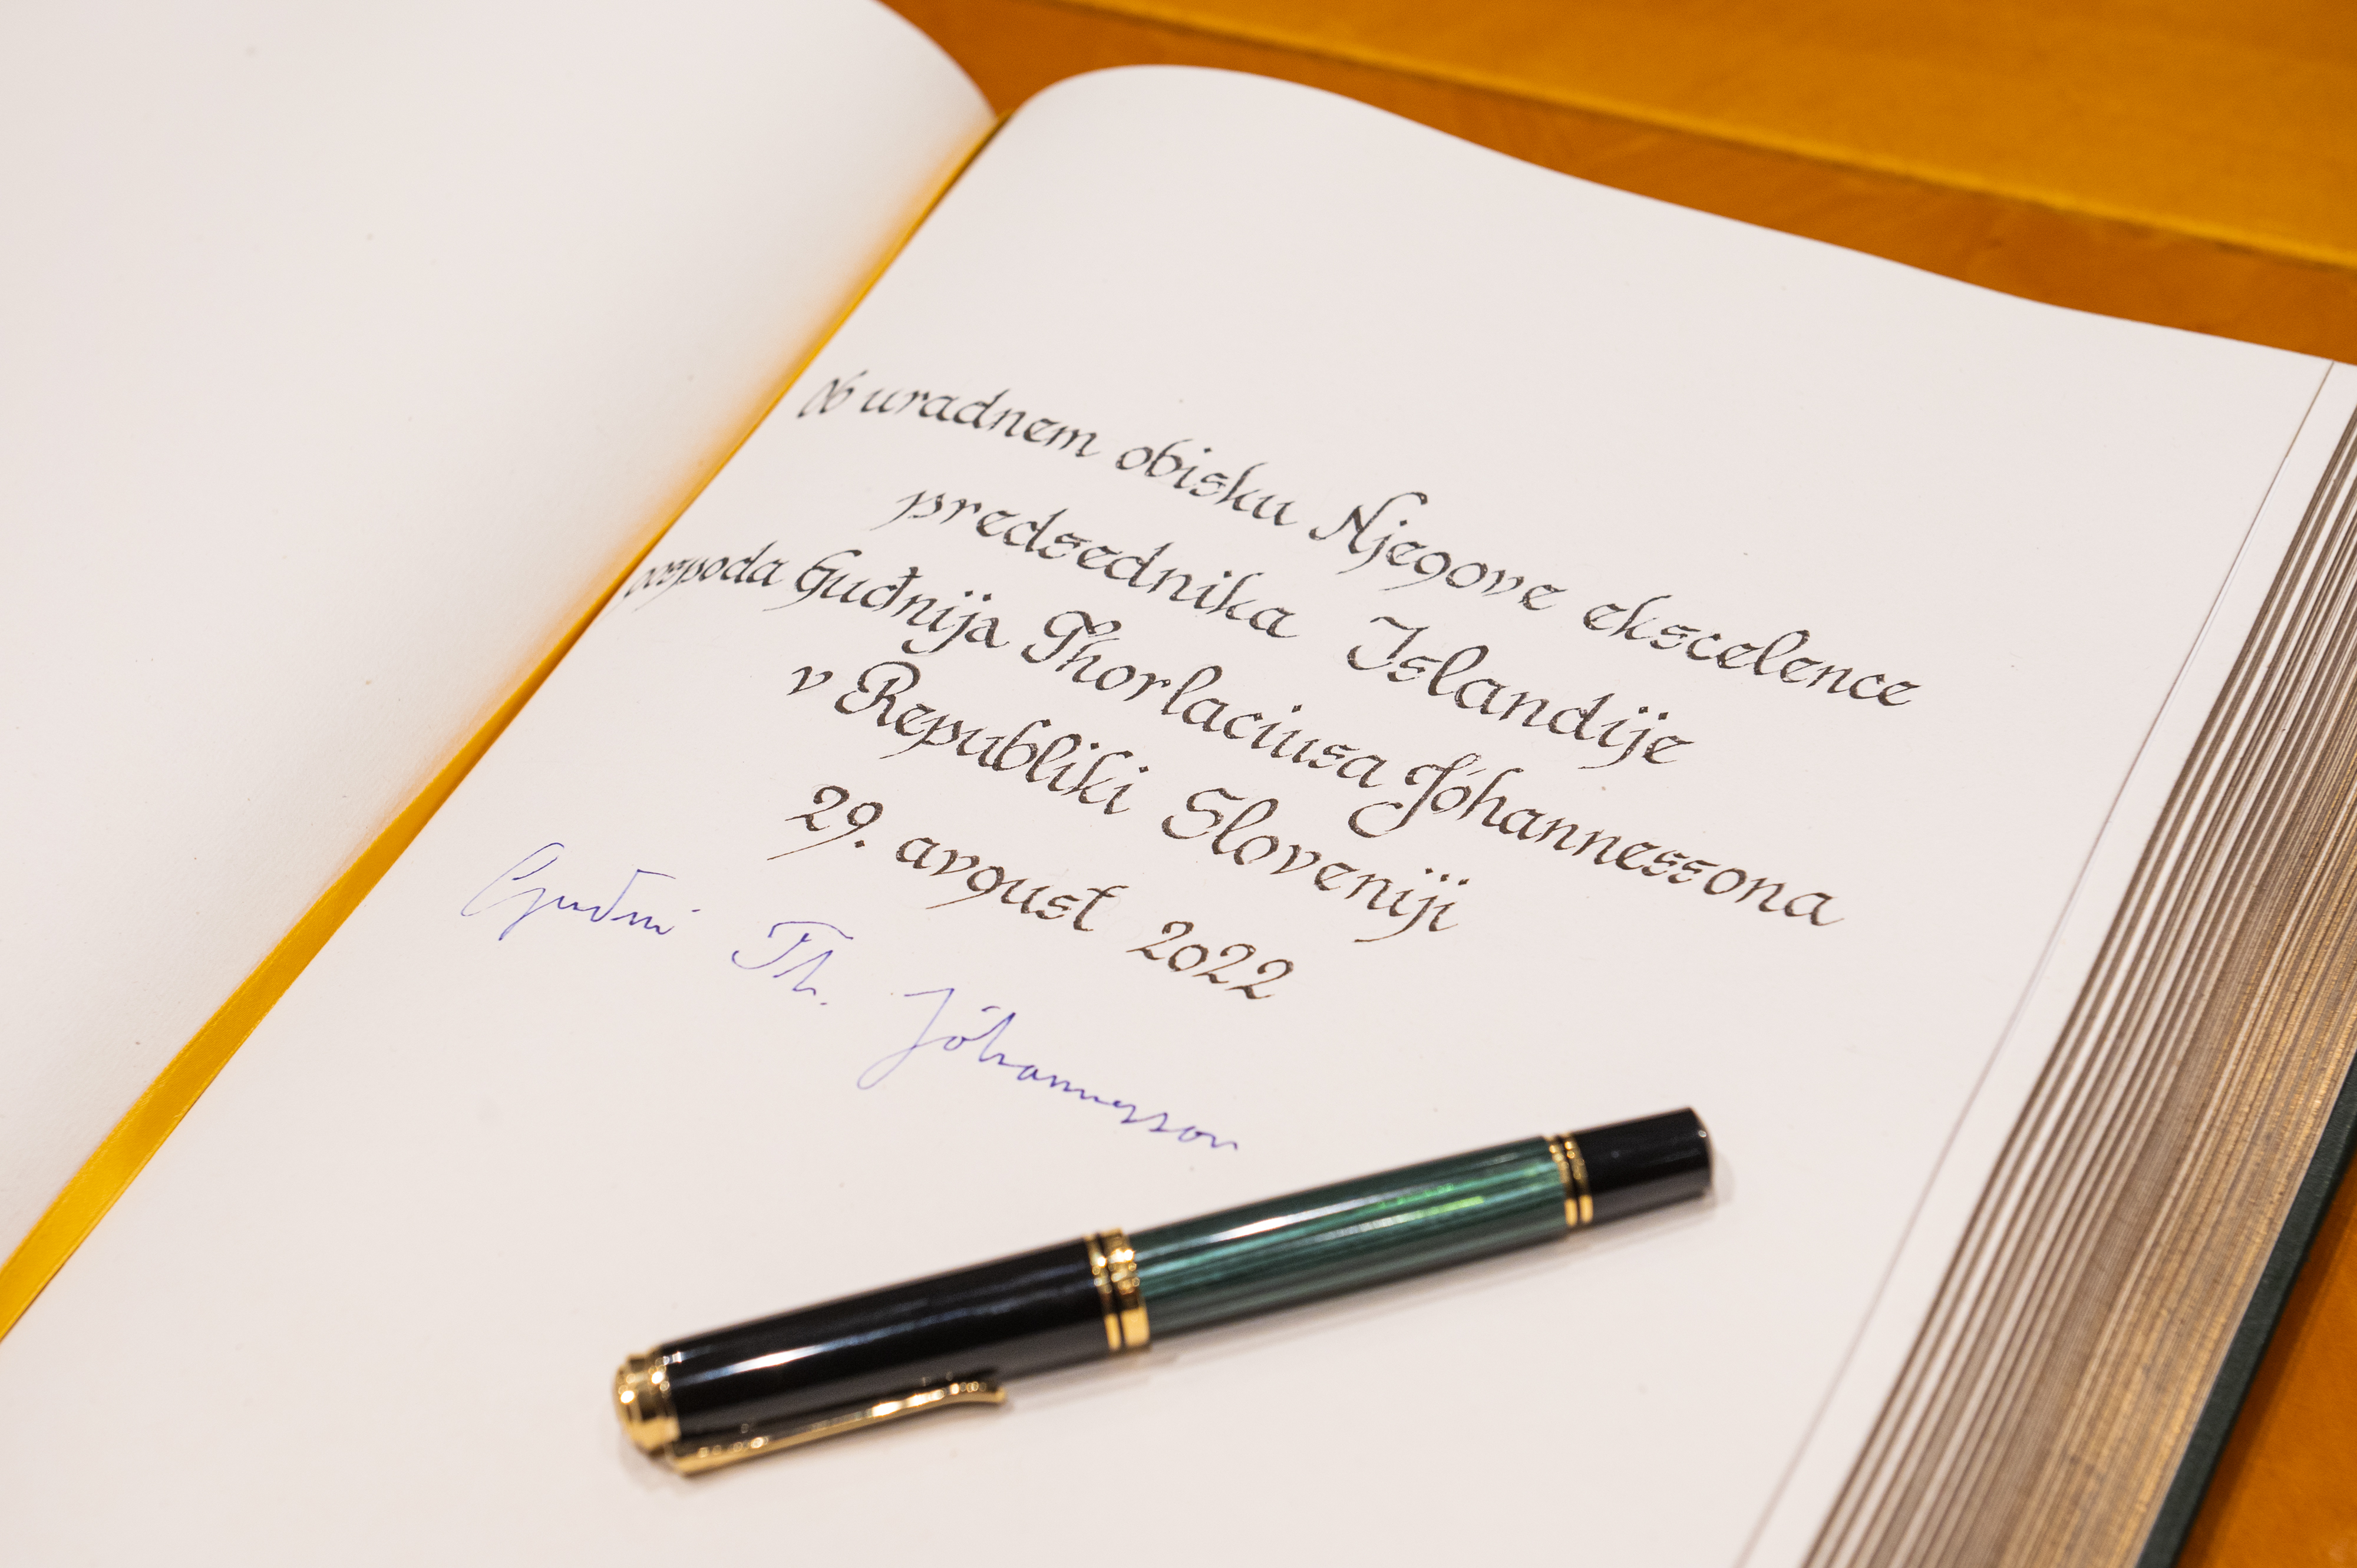 Ob uradnem obisku Njegove ekscelence
predsednika Islandije
gospoda Guđnija Thorlaciusa Jóhannessona
v Republiki Sloveniji
29. avgust 2022
Guðni Th. Jóhannesson